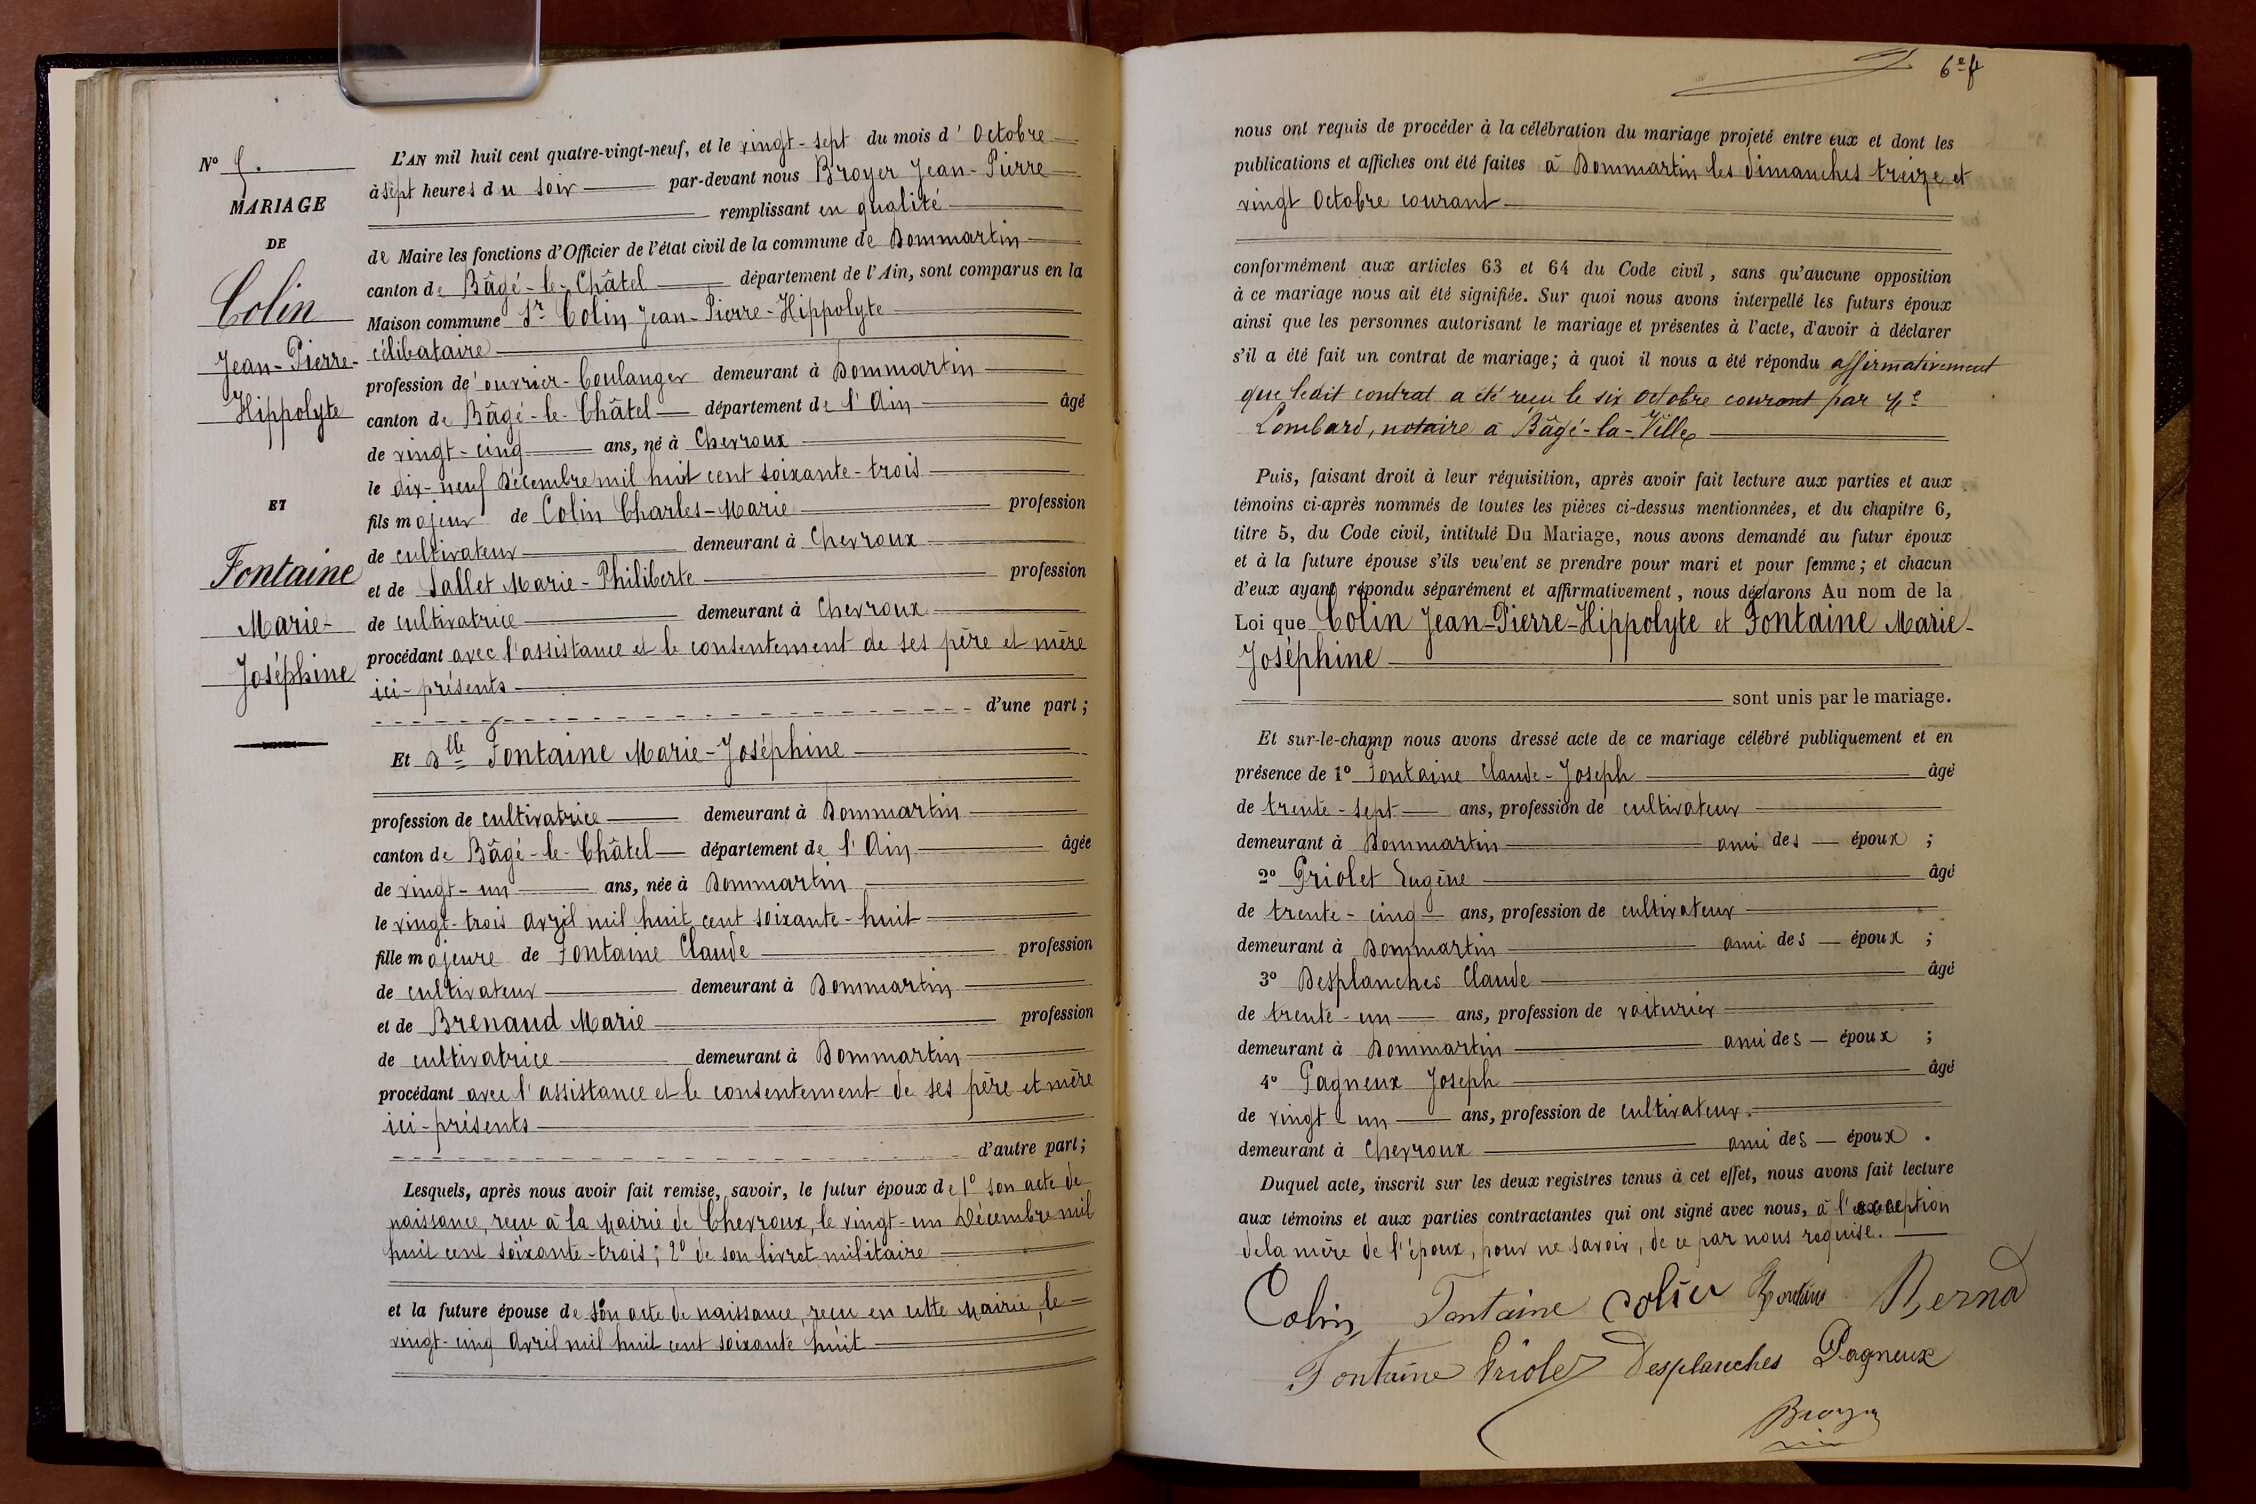 N° 
MARIAGE
DE
Colin
Jean-Pierre-
Hippolyte
ET
Fontaine
Marie-
Joséphine
L'AN mil huit cent quatre-vingt-neuf, et le vingt-sept du mois d'Octobre
à sept heures du soir par-devant nous Broyer Jean-Pierre
remplissant en qualité
de Maire les fonctions d'Officier de l'état civil de la commune de Dommartin
canton de Bâgé-le-Châtel département de l'Ain, sont comparus en la
Maison commune Sr Colin Jean-Pierre-Hippolyte
célibataire
profession de ouvrier-boulanger demeurant à Dommartin
canton de Bâgé-le-Châtel département de l'Ain âgé
de vingt-cinq ans, né à Chevroux
le dix-neuf Décembre mil huit cent soixante-trois
fils majeur de Colin Charles-Marie profession
de cultivateur demeurant à Chevroux
et de Sallet Marie-Philiberte profession
de cultivatrice demeurant à Chevroux
procédant avec l'assistance et le consentement de ses père et mère
ici-présents
d'une part;
Et Dlle Fontaine Marie-Joséphine
profession de cultivatrice demeurant à Dommartin
canton de Bâgé-le-Châtel département de l'Ain âgée
de vingt-un ans, née à Dommartin
le vingt-trois avril mil huit cent soixante-huit
fille majeure de Fontaine Claude profession
de cultivateur demeurant à Dommartin
et de Brenaud Marie profession
de cultivatrice demeurant à Dommartin
procédant avec l'assistance et le consentement de ses père et mère
ici-présents
d'autre part;
Lesquels, après nous avoir fait remise, savoir, le futur époux de 1° son acte de
naissance, reçu à la Mairie de Chevroux, le vingt-un Décembre mil
huit cent soixante-trois; 2° de son livret militaire
et la future épouse de son acte de naissance, reçu en cette Mairie, le
vingt-cinq avril mil huit cent soixante huit
6e f
nous ont requis de procéder à la célébration du mariage projeté entre eux et dont les
publications et affiches ont été faites à Dommartin les dimanches treize et
vingt Octobre courant
conformément aux articles 63 et 64 du Code civil, sans qu'aucune opposition
à ce mariage nous ait été signifiée. Sur quoi nous avons interpellé les futurs époux
ainsi que les personnes autorisant le mariage et présentes à l'acte, d'avoir à déclarer
s'il a été fait un contrat de mariage; à quoi il nous a été répondu affirmativement
que ledit contrat a été reçu le six octobre courant par Me
Lombard, notaire à Bâgé-la-Ville
Puis, faisant droit à leur réquisition, après avoir fait lecture aux parties et aux
témoins ci-après nommés de toutes les pièces ci-dessus mentionnées, et du chapitre 6,
titre 5, du Code civil, intitulé Du Mariage, nous avons demandé au futur époux
et à la future épouse s'ils veu'ent se prendre pour mari et pour femme; et chacun
d'eux ayant répondu séparément et affirmativement, nous déclarons Au nom de la
Loi que Colin Jean-Pierre-Hippolyte et Fontaine Marie-
Joséphine
sont unis par le mariage.
Et sur-le-champ nous avons dressé acte de ce mariage célébré publiquement et en
présence de 1° Fontaine Claude-Joseph âgé
de trente-sept ans, profession de cultivateur
demeurant à Dommartin ami des époux;
2° Griolet Eugène âgé
de trente-cinq ans, profession de cultivateur
demeurant à Dommartin ami des époux;
3° Desplanches Claude âgé
de trente-un ans, profession de voiturier
demeurant à Dommartin ami des époux;
4° Pagneux Joseph âgé
de vingt-un ans, profession de cultivateur.
demeurant à Chevroux ami des époux.
Duquel acte, inscrit sur les deux registres tenus à cet effet, nous avons fait lecture
aux témoins et aux parties contractantes qui ont signé avec nous, à l'exception
de la mère de l'époux, pour ne savoir, de ce par nous requise.
Colin Fontaine Colin Fontaine Bernod
Fontaine Griolet Desplanches Pagneux
Broyer